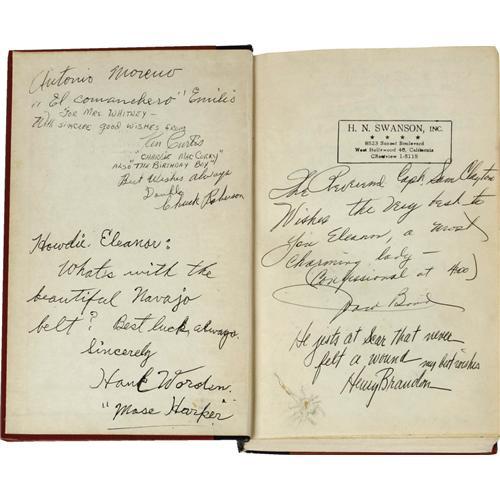 Antonio Moreno
"El Comanchero" Emilio
FOR MRS WHITNEY –
With sincere good wishes from
Ken Curtis
"CHARLIE MacCorry"
ALSO "THE BIRTHDAY BOY"
Best Wishes always
Double
Chuck Roberson
Howdie Eleanor:
What's with the
beautiful Navajo
belt? Best luck, always.
Sincerely
Hank Worden.
"Mose Harper"
H. N. SWANSON, INC.
★ ★ ★ ★
8523 Sunset Boulevard
West Hollywood 46, California
CRestview 1-5115
The Reverend Capt. Sam Clayton
Wishes the Very best to
you Eleanor, a most
Charming lady –
(Confessional at 4:00)
Ward Bond
He jests at scar that never
felt a wound my best wishes
Henry Brandon